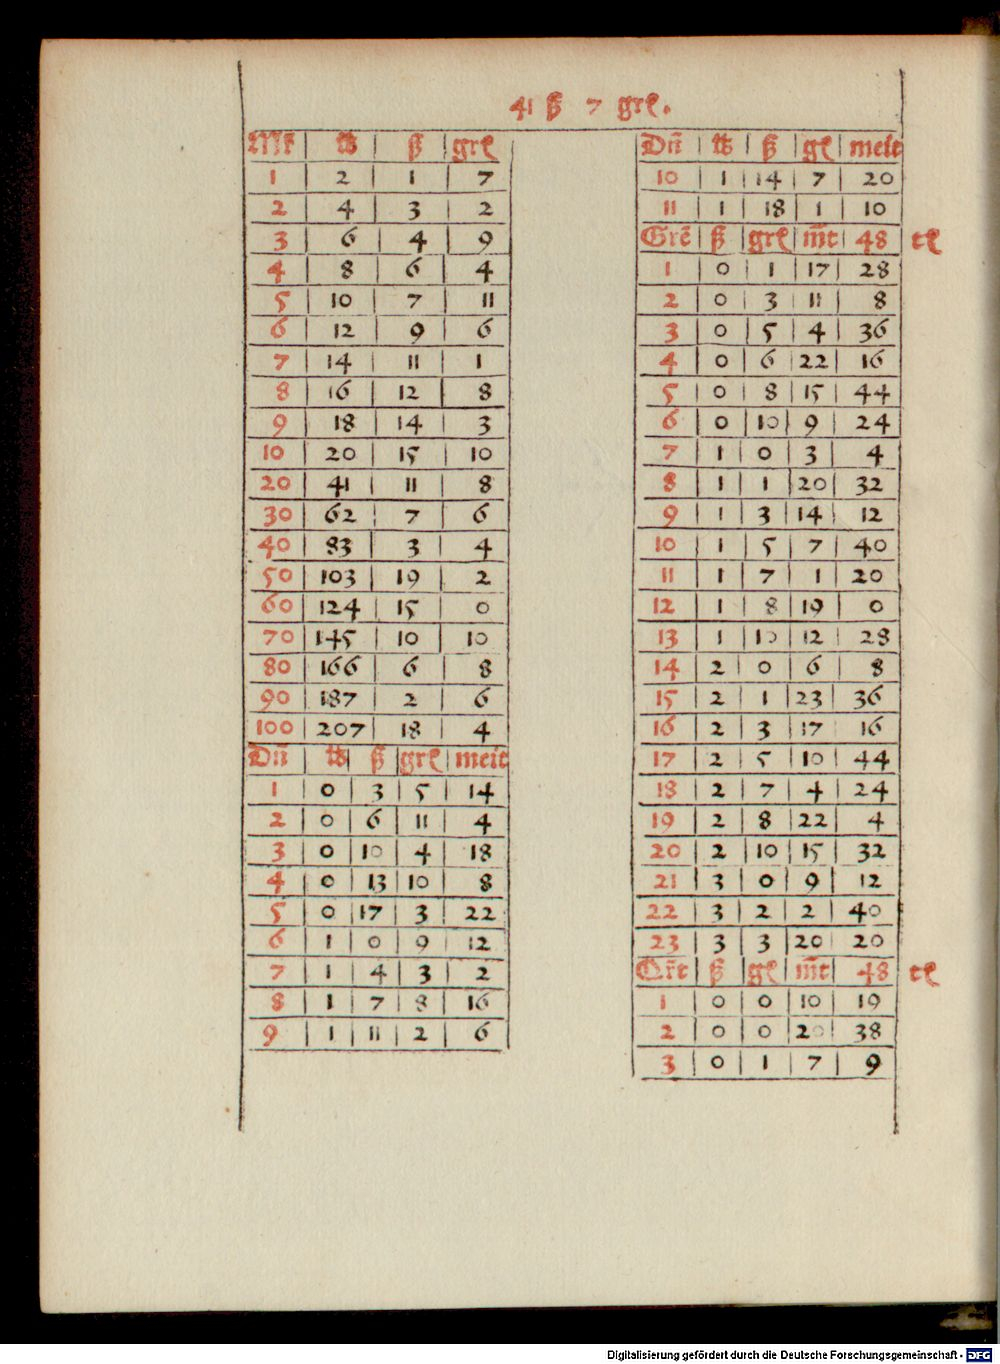 41 ß 7 grꝭ.
Mk | lb | ß | grꝭ
1 | 2 | 1 | 7
2 | 4 | 3 | 2
3 | 6 | 4 | 9
4 | 8 | 6 | 4
5 | 10 | 7 | 11
6 | 12 | 9 | 6
7 | 14 | 11 | 1
8 | 16 | 12 | 8
9 | 18 | 14 | 3
10 | 20 | 15 | 10
20 | 41 | 11 | 8
30 | 62 | 7 | 6
40 | 83 | 3 | 4
50 | 103 | 19 | 2
60 | 124 | 15 | 0
70 | 145 | 10 | 10
80 | 166 | 6 | 8
90 | 187 | 2 | 6
100 | 207 | 18 | 4
Dn̄ | lb | ß | grꝭ | meit
1 | 0 | 3 | 5 | 14
2 | 0 | 6 | 11 | 4
3 | 0 | 10 | 4 | 18
4 | 0 | 13 | 10 | 8
5 | 0 | 17 | 3 | 22
6 | 1 | 0 | 9 | 12
7 | 1 | 4 | 3 | 2
8 | 1 | 7 | 8 | 16
9 | 1 | 11 | 2 | 6
Dn̄ | lb | ß | gꝭ | meit
10 | 1 | 14 | 7 | 20
11 | 1 | 18 | 1 | 10
Grē | ß | grꝭ | m̄t | 48 | tꝭ
1 | 0 | 1 | 17 | 28
2 | 0 | 3 | 11 | 8
3 | 0 | 5 | 4 | 36
4 | 0 | 6 | 22 | 16
5 | 0 | 8 | 15 | 44
6 | 0 | 10 | 9 | 24
7 | 1 | 0 | 3 | 4
8 | 1 | 1 | 20 | 32
9 | 1 | 3 | 14 | 12
10 | 1 | 5 | 7 | 40
11 | 1 | 7 | 1 | 20
12 | 1 | 8 | 19 | 0
13 | 1 | 10 | 12 | 28
14 | 2 | 0 | 6 | 8
15 | 2 | 1 | 23 | 36
16 | 2 | 3 | 17 | 16
17 | 2 | 5 | 10 | 44
18 | 2 | 7 | 4 | 24
19 | 2 | 8 | 22 | 4
20 | 2 | 10 | 15 | 32
21 | 3 | 0 | 9 | 12
22 | 3 | 2 | 2 | 40
23 | 3 | 3 | 20 | 20
Qr̄t | ß | gꝭ | m̄t | 48 | tꝭ
1 | 0 | 0 | 10 | 19
2 | 0 | 0 | 20 | 38
3 | 0 | 1 | 7 | 9
Digitalisierung gefördert durch die Deutsche Forschungsgemeinschaft - DFG